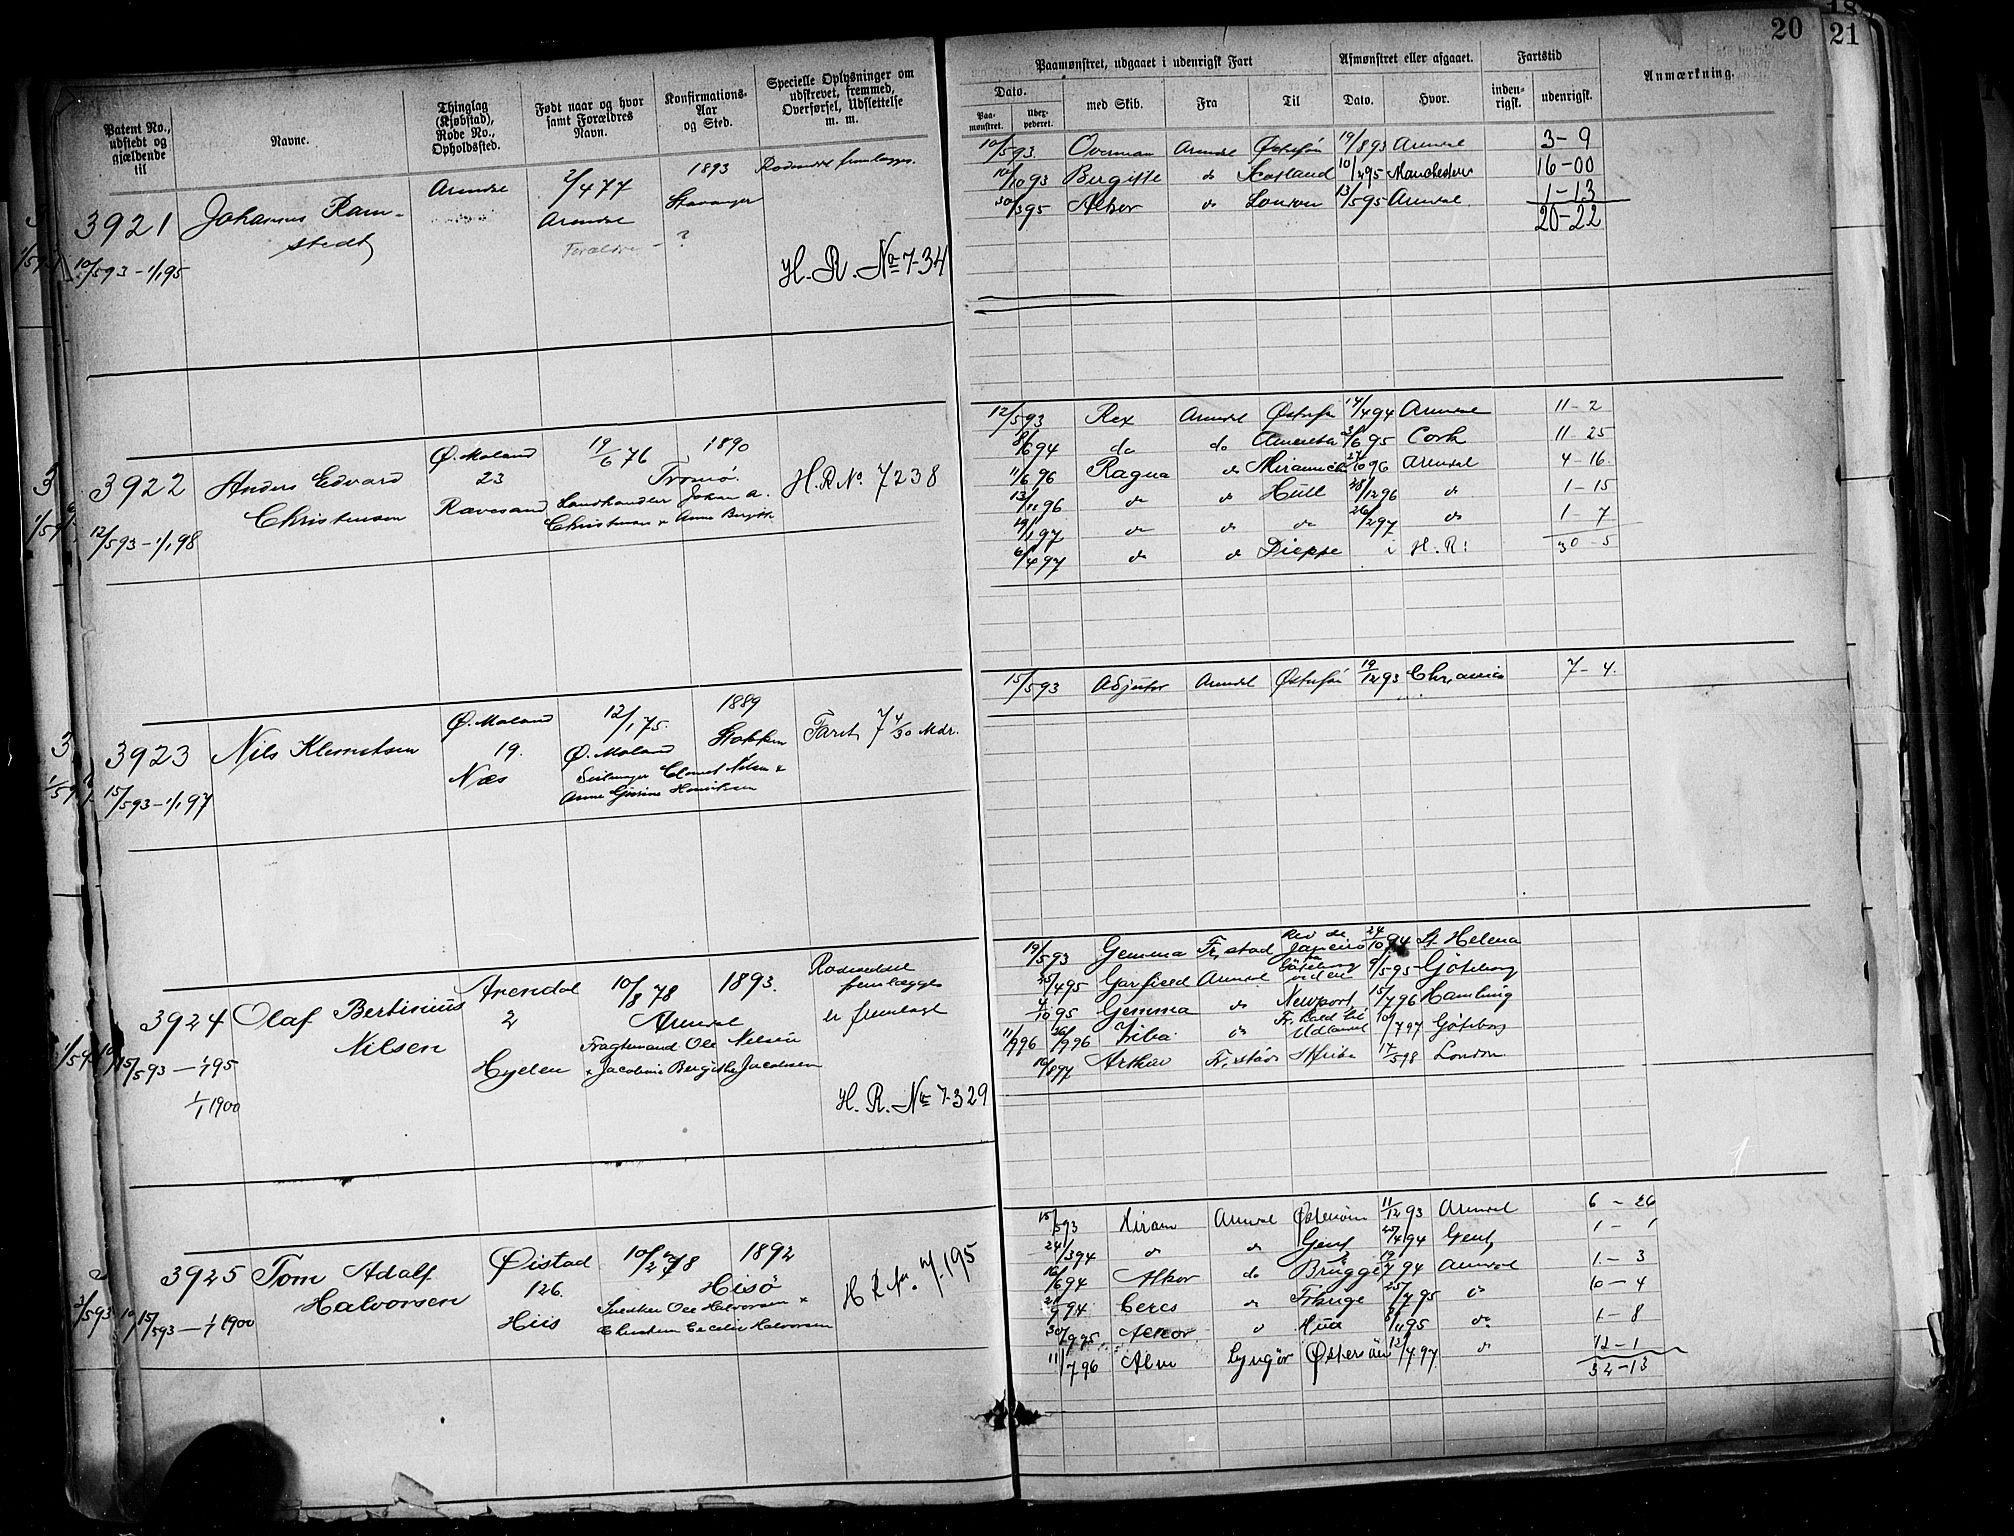 20
21
Patent No., udstedt og gjældende til
Navne.
Thinglag (Kjøbstad), Rode No., Opholdssted.
Født naar og hvor samt Forældres Navn.
Konfirmations- Aar og Sted.
Specielle Oplysninger om udskrevet, fremmed, Overførsel, Udslettelse m. m.
Paamønstret, udgaaet i udenrigsk Fart
Afmønstret eller afgaaet.
Fartstid
Anmærkning.
Dato.
Paa- mønstret.
med Skib.
Fra
Til
Dato.
Hvor.
inden- rigsk.
udenrigsk.
3921
Johannes Ram-
stedt
10/5 93 - 1/1 95
Arendal
2/4 77
Arendal
Forældre - ?
1893
Stavanger
H. R. No 7-34
10/5 93 Overman Arendal Østersøn 19/8 93 Arendal 3-9
10/10 93 Birgitte do Scotland 10/4 95 Manchester 16-00
30/3 95 Alkor do London 13/5 95 Arendal 1-13
20-22
3922
Anders Edvard
Christensen
12/5 93 - 1/1 98
Ø. Moland
23
Ravesand
19/6 76
Landhandler Johan A.
Christensen & Anne Birgitte
1890
Tromø.
H. R No. 7238
12/5 93 Rex Arendal Østersøn 14/4 94 Arendal 11-2
8/6 94 do do Amerika 3/6 95 Cork 11-25
11/6 96 Ragna do Miramichi 27/10 96 Arendal 4-16
13/11 96 do do Hull 28/12 96 do 1-15
19/1 97 do do do 26/2 97 do 1-7
6/4 97 do do Dieppe i H. R: 30-5
3923
Nils Klemetsen
15/5 93 - 1/1 97
Ø. Moland
19.
Næs
12/1 75.
Ø. Moland
1889
Stokken
Faret 7 4/30 Mdr.
15/5 93 Adjutor Arendal Østersøn 19/12 93 Chr.ania 7-4.
3924
Olaf Bertinius
Nilsen
15/5 93 - 1/1 95
1/1 1900
Arendal
2
Hylen
10/8 78
Arendal
Fragtemand Ole Nilsen
& Jacobine Bergithe Jacobsen
1893.
Rodeseddel
fremlægges
er fremlagt
H. R. No 7-329
19/5 93 Gemma Fr.stad Rio de Janeiro 24/10 94 St. Helena
25/4 95 Garfield Arendal Göteborg 9/5 95 Göteborg
4/10 95 Gemma do Newport 15/7 96 Hamburg
Göteborg
16/8 97 Arthur Fr.stad Afrika 17/5 98 London
3925
Tom Adolf
Halvorsen
15/5 93 - 1/1 1900
Øistad
126.
Hiis
10/2 78
Snedker Ole Halvorsen &
Christine Cecilie Halvorsen
1892
Hisø
H R No. 7-195
15/5 93 Hiram Arendal Østersøen 11/12 93 Arendal 6-26
24/3 94 do do Gent 25/4 94 Gent 1-1
16/6 94 Alkor do Brügge 19/7 94 Arendal 1-3
9 94 Ceres do 25/7 95 do 10-4
30/9 95 Alkor do Hull 8/11 95 do 1-8
11/7 96 Alm Lyngør Østersøen 12/4 97 do 12-1
32-13